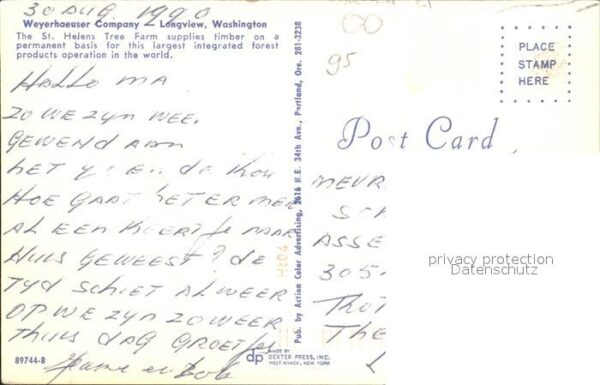 30 AUG 1990
Weyerhaeuser Company — Longview, Washington
The St. Helens Tree Farm supplies timber on a
permanent basis for this largest integrated forest
products operation in the world.
HALLO MA
ZO WE ZYN WEER
GEWEND AAN
HET
HOE GAAT HET ER MEE
AL EEN KEERTJE NAAR
HUIS GEWEEST? de
TYD SCHIET AL WEER
OP WE ZYN ZO WEER
THUIS DAG GROETJES
en Bob
89744-B
Pub. by Action Color Advertising, 2616 N.E. 34th Ave., Portland, Ore. 281-3238
dp
MADE BY
DEXTER PRESS, INC.
WEST NYACK, NEW YORK
95
PLACE
STAMP
HERE
Post Card
MEVR
SCH
ASSE
305
THE
privacy protection
Datenschutz